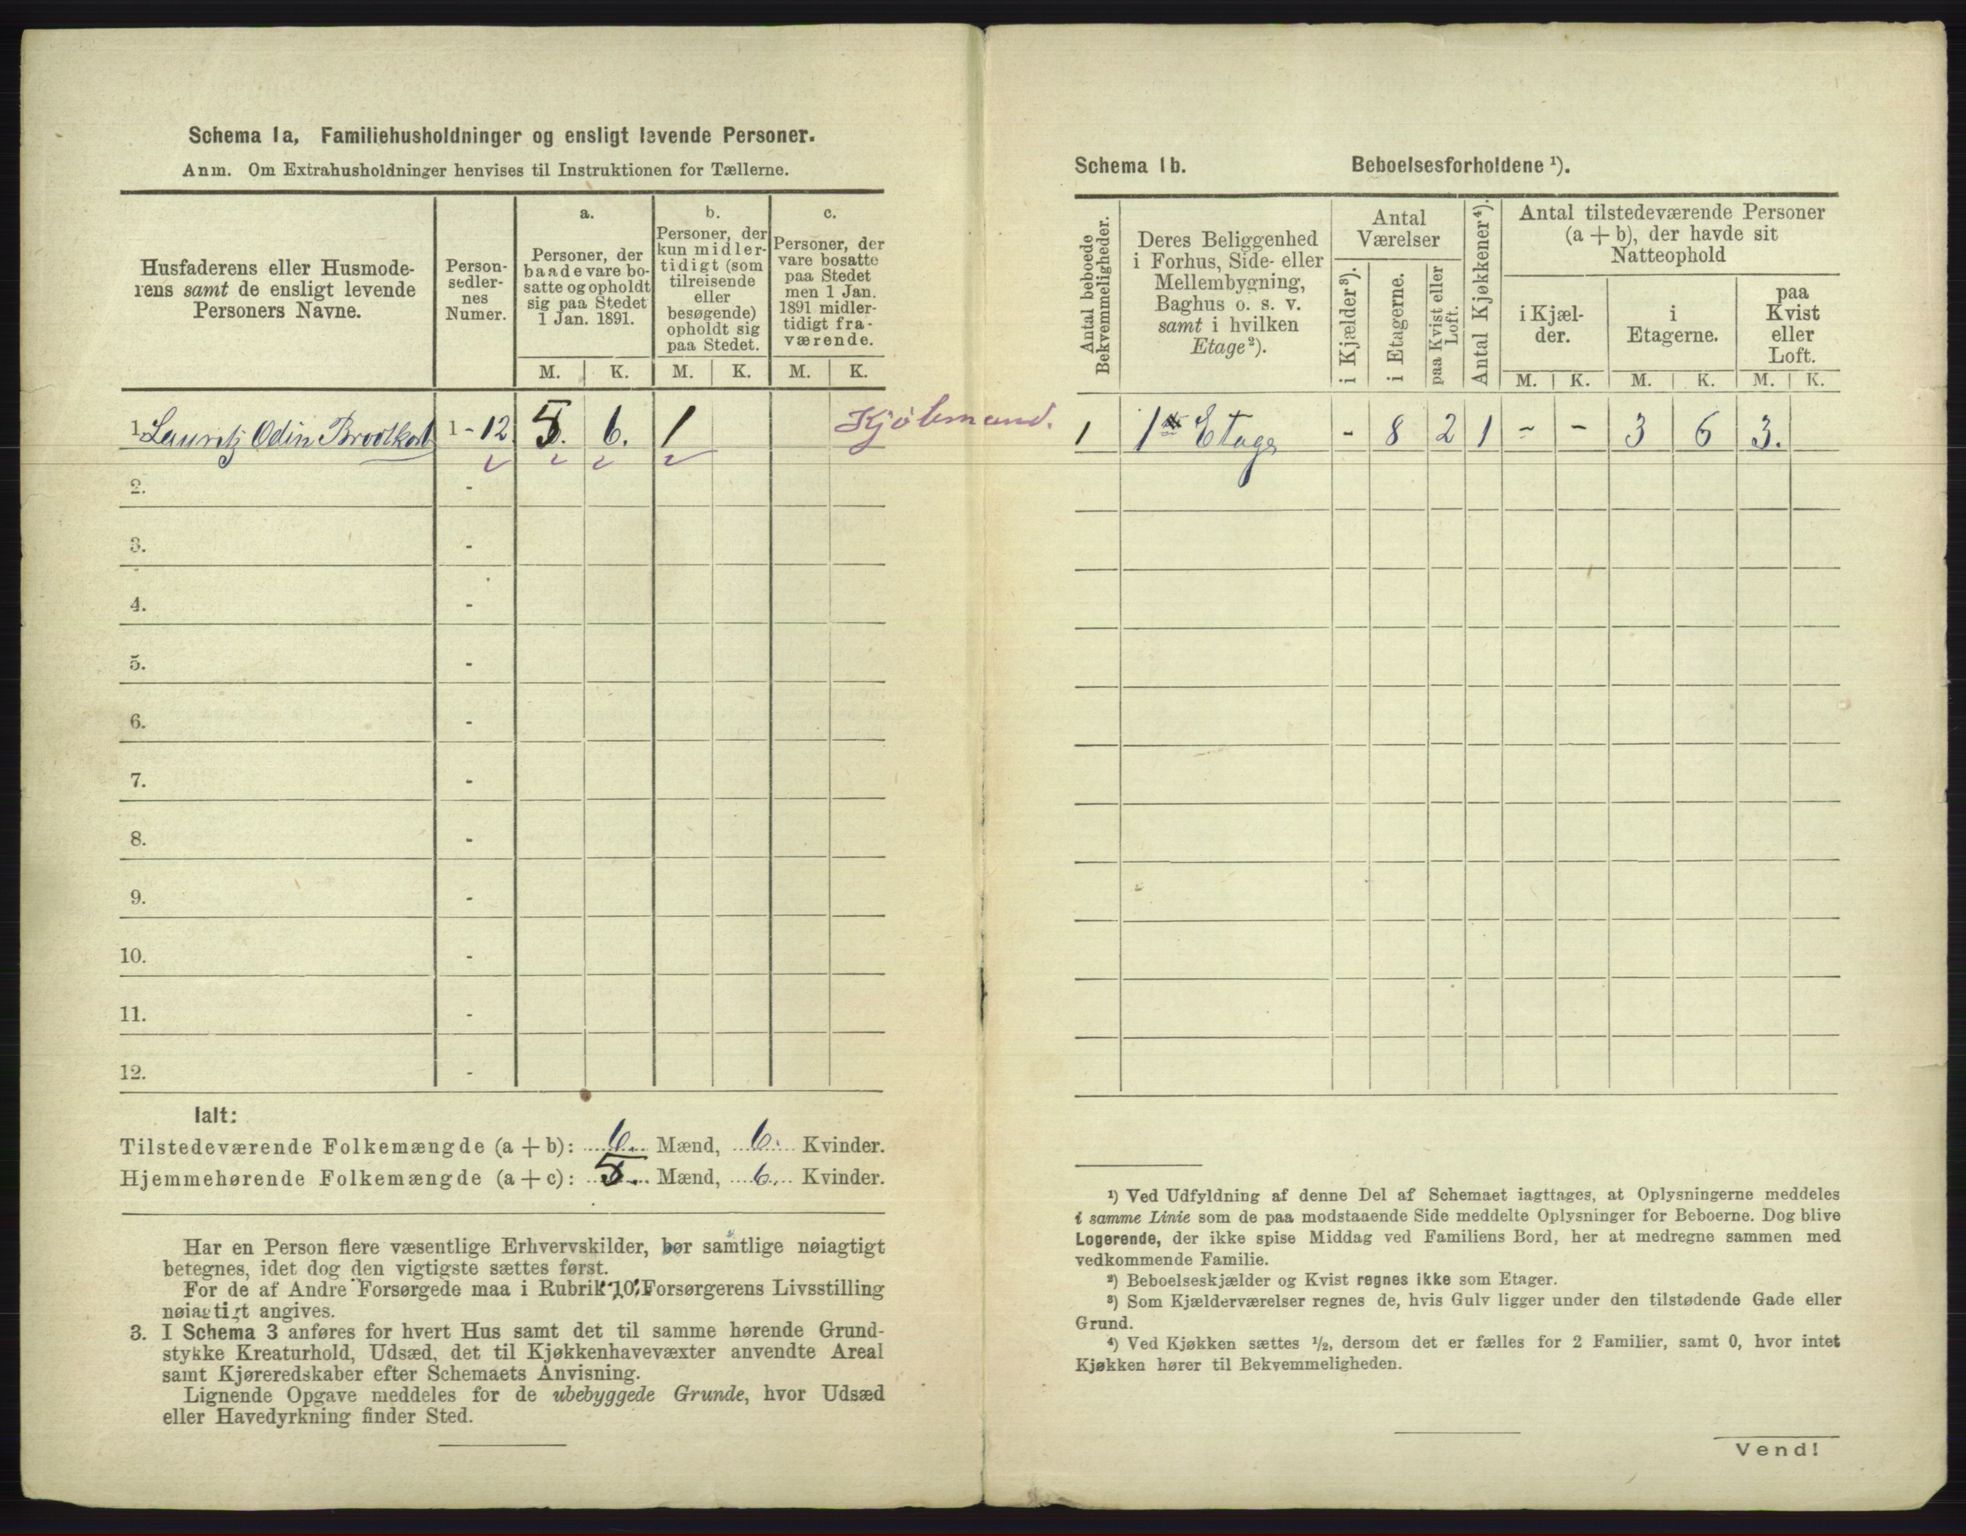 Schema 1a, Familiehusholdninger og ensligt levende Personer.
Anm. Om Extrahusholdninger henvises til Instruktionen for Tællerne.
Husfaderens eller Husmode-
rens samt de ensligt levende
Personers Navne.
Person-
sedler-
nes
Numer.
a.
Personer, der
baade vare bo-
satte og opholdt
sig paa Stedet
1 Jan. 1891.
b.
Personer, der
kun midler-
tidigt (som
tilreisende
eller
besøgende)
opholdt sig
paa Stedet.
c.
Personer, der
vare bosatte
paa Stedet
men 1 Jan.
1891 midler-
tidigt fra-
værende.
M. K. M. K. M. K.
1. Lauritz Odin 1 - 12 5. 6. 1 Kjøbmand.
2. -
3. -
4. -
5. -
6. -
7. -
8. -
9. -
10. -
11. -
12. -
Ialt:
Tilstedeværende Folkemængde (a + b): 6. Mænd, 6. Kvinder.
Hjemmehørende Folkemængde (a + c): 5. Mænd, 6. Kvinder.
Har en Person flere væsentlige Erhvervskilder, bør samtlige nøiagtigt
betegnes, idet dog den vigtigste sættes først.
For de af Andre Forsørgede maa i Rubrik 10 Forsørgerens Livsstilling
nøiagtigt angives.
3. I Schema 3 anføres for hvert Hus samt det til samme hørende Grund-
stykke Kreaturhold, Udsæd, det til Kjøkkenhavevæxter anvendte Areal
samt Kjøreredskaber efter Schemaets Anvisning.
Lignende Opgave meddeles for de ubebyggede Grunde, hvor Udsæd
eller Havedyrkning finder Sted.
Schema 1b. Beboelsesforholdene ¹).
Antal beboede
Bekvemmeligheder.
Deres Beliggenhed
i Forhus, Side- eller
Mellembygning,
Baghus o. s. v.
samt i hvilken
Etage²).
Antal
Værelser
i Kjælder³).
i Etagerne.
paa Kvist eller
Loft.
Antal Kjøkkener⁴).
Antal tilstedeværende Personer
(a + b), der havde sit
Natteophold
i Kjæl-
der.
i
Etagerne.
paa
Kvist
eller
Loft.
M. K. M. K. M. K.
1 1ste Etage - 8 2 1 - - 3 6 3.
¹) Ved Udfyldning af denne Del af Schemaet iagttages, at Oplysningerne meddeles
i samme Linie som de paa modstaaende Side meddelte Oplysninger for Beboerne. Dog blive
Logerende, der ikke spise Middag ved Familiens Bord, her at medregne sammen med
vedkommende Familie.
²) Beboelseskjælder og Kvist regnes ikke som Etager.
³) Som Kjælderværelser regnes de, hvis Gulv ligger under den tilstødende Gade eller
Grund.
⁴) Ved Kjøkken sættes ½, dersom det er fælles for 2 Familier, samt 0, hvor intet
Kjøkken hører til Bekvemmeligheden.
Vend!